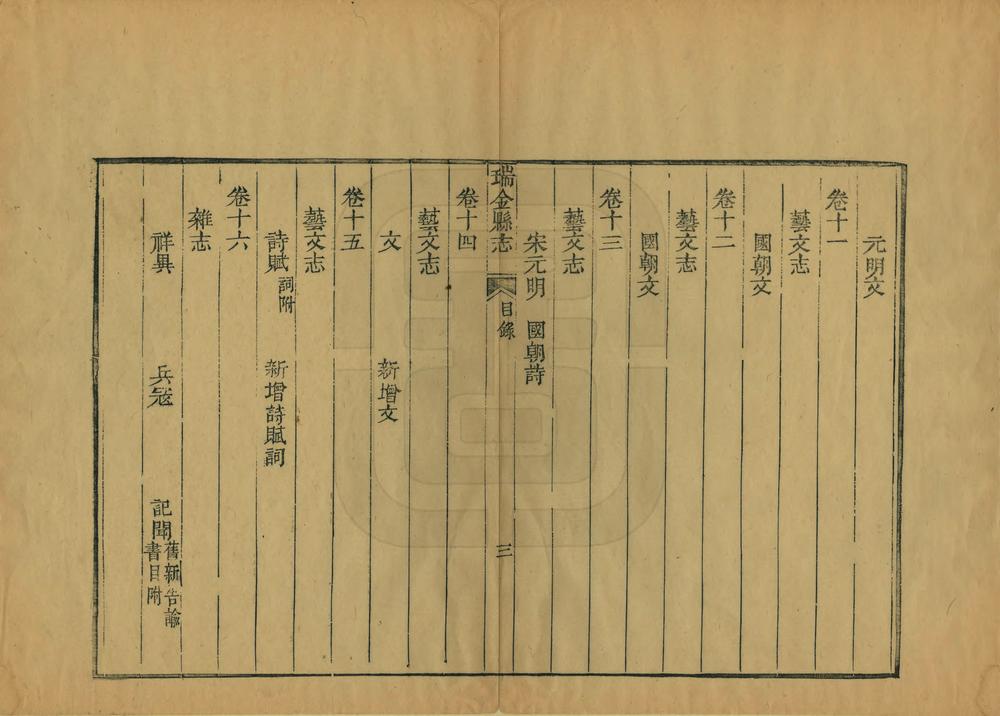 元明文
卷十一
藝文志
國朝文
卷十二
藝文志
國朝文
卷十三
藝文志
宋元明　國朝詩
瑞金縣志　目錄　三
卷十四
藝文志
文　新增文
卷十五
藝文志
詩賦詞附　新增詩賦詞
卷十六
雜志
祥異　兵寇　記聞舊新告諭書目附